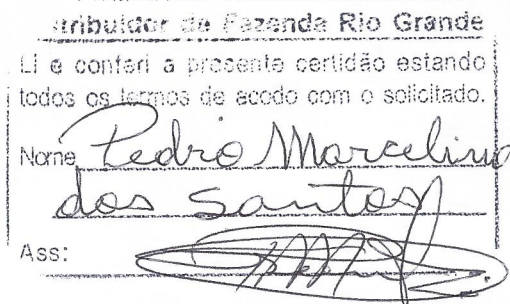 de Fazenda Rio Grande
Li e conferi a presente certidão estando
todos os termos de acodo com o solicitado.
Nome Pedro Marcelino
dos Santos
Ass: